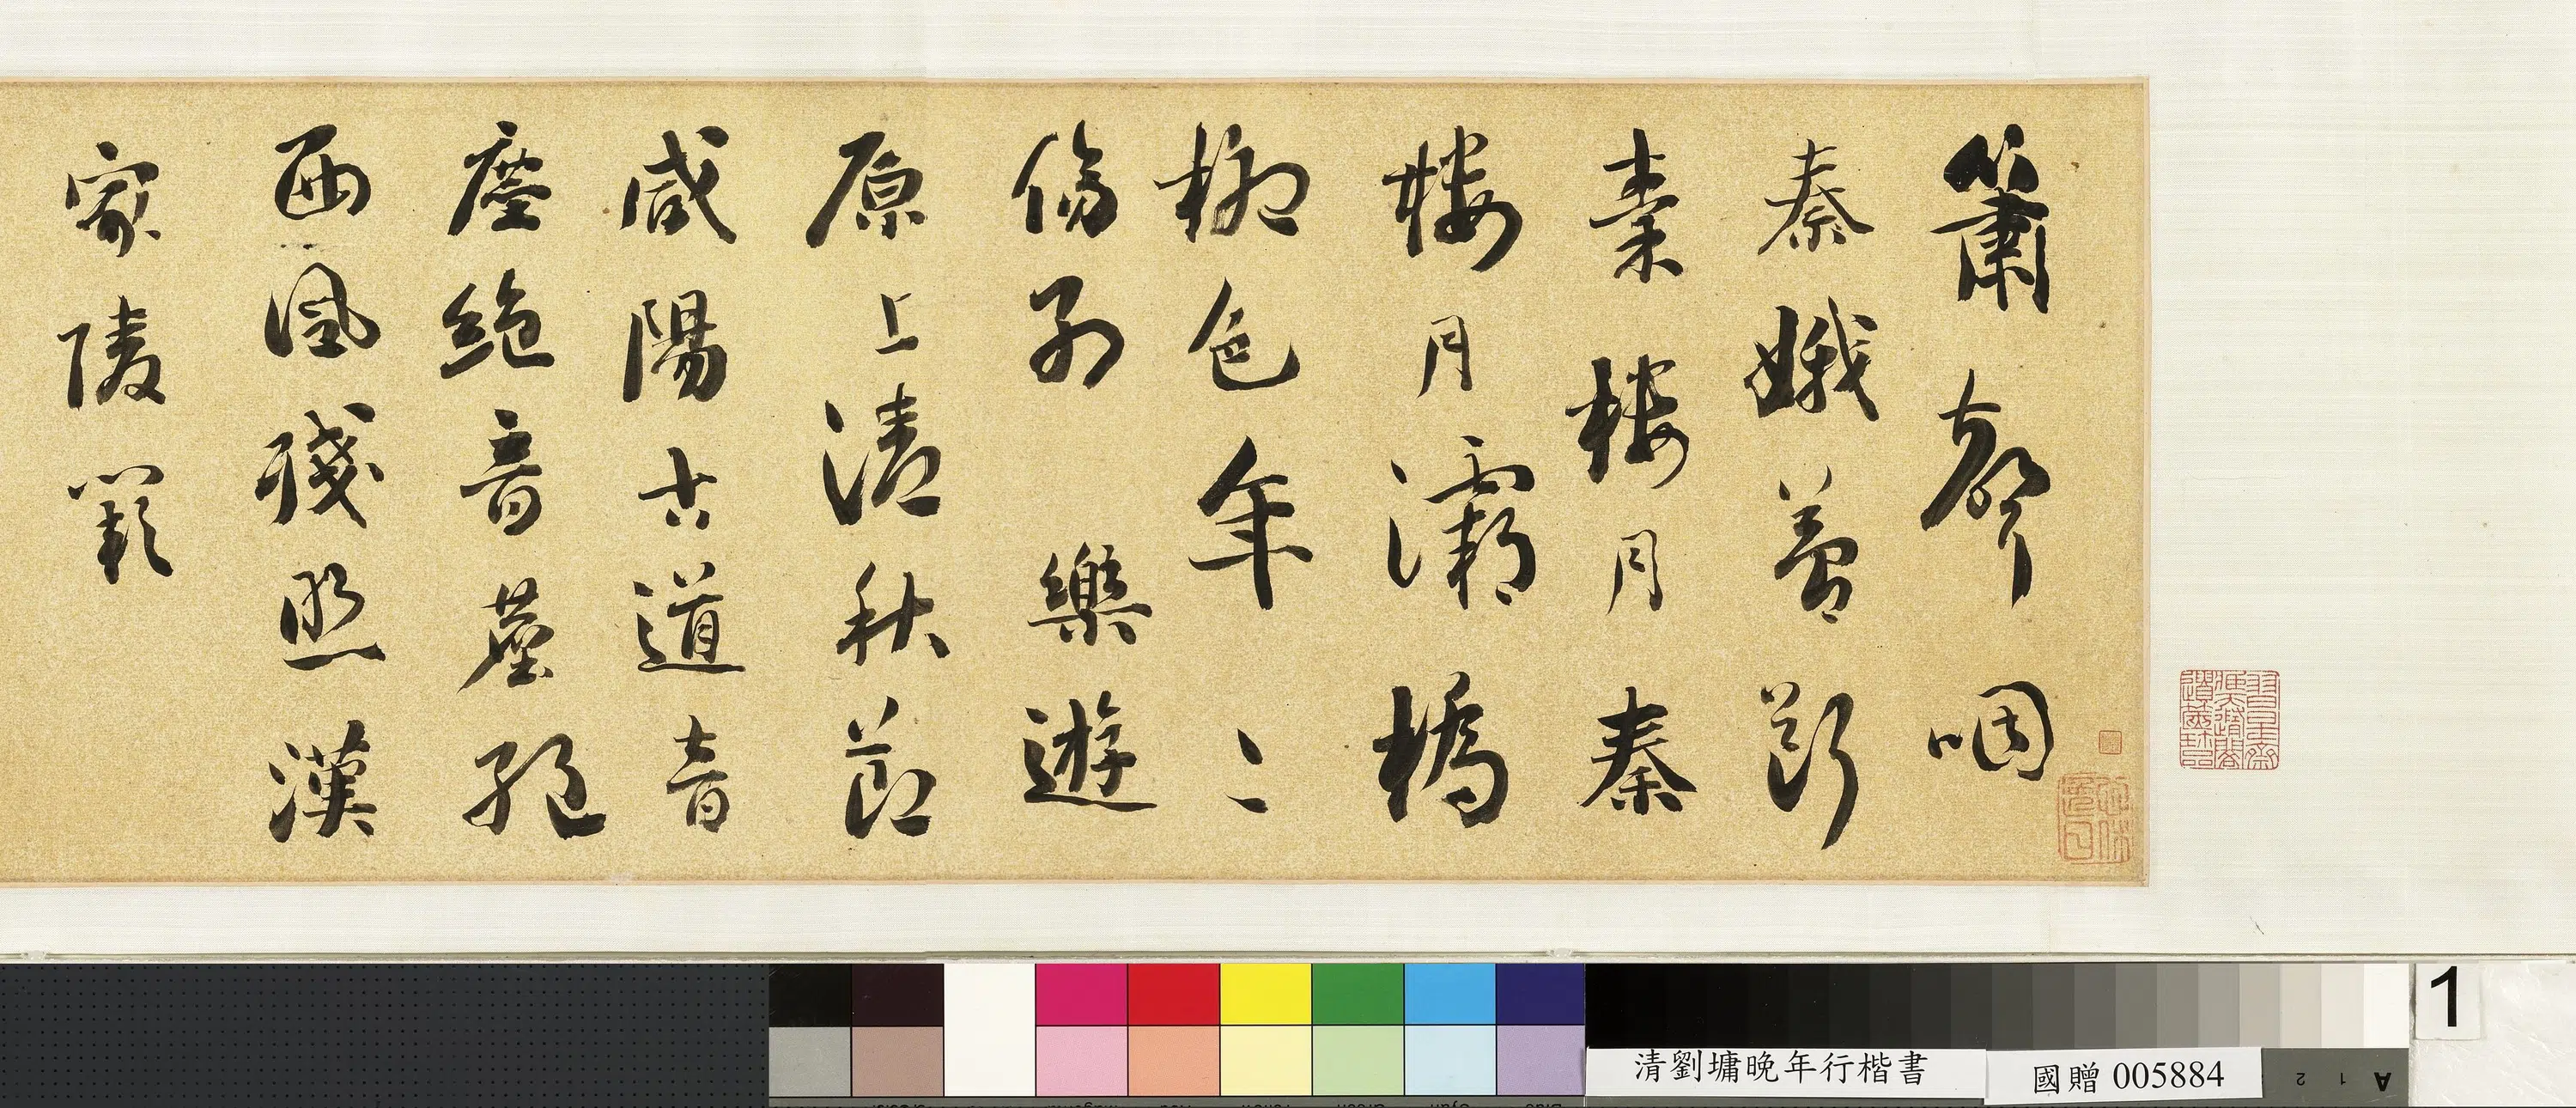 簫聲咽
秦娥夢斷
秦樓月秦
樓月灞橋
柳色年〻
傷別 樂遊
原上清秋節
咸陽古道音
塵絕音塵絕
西風殘照漢
家陵闕
清劉墉晚年行楷書
國贈 005884
1
A 1 2